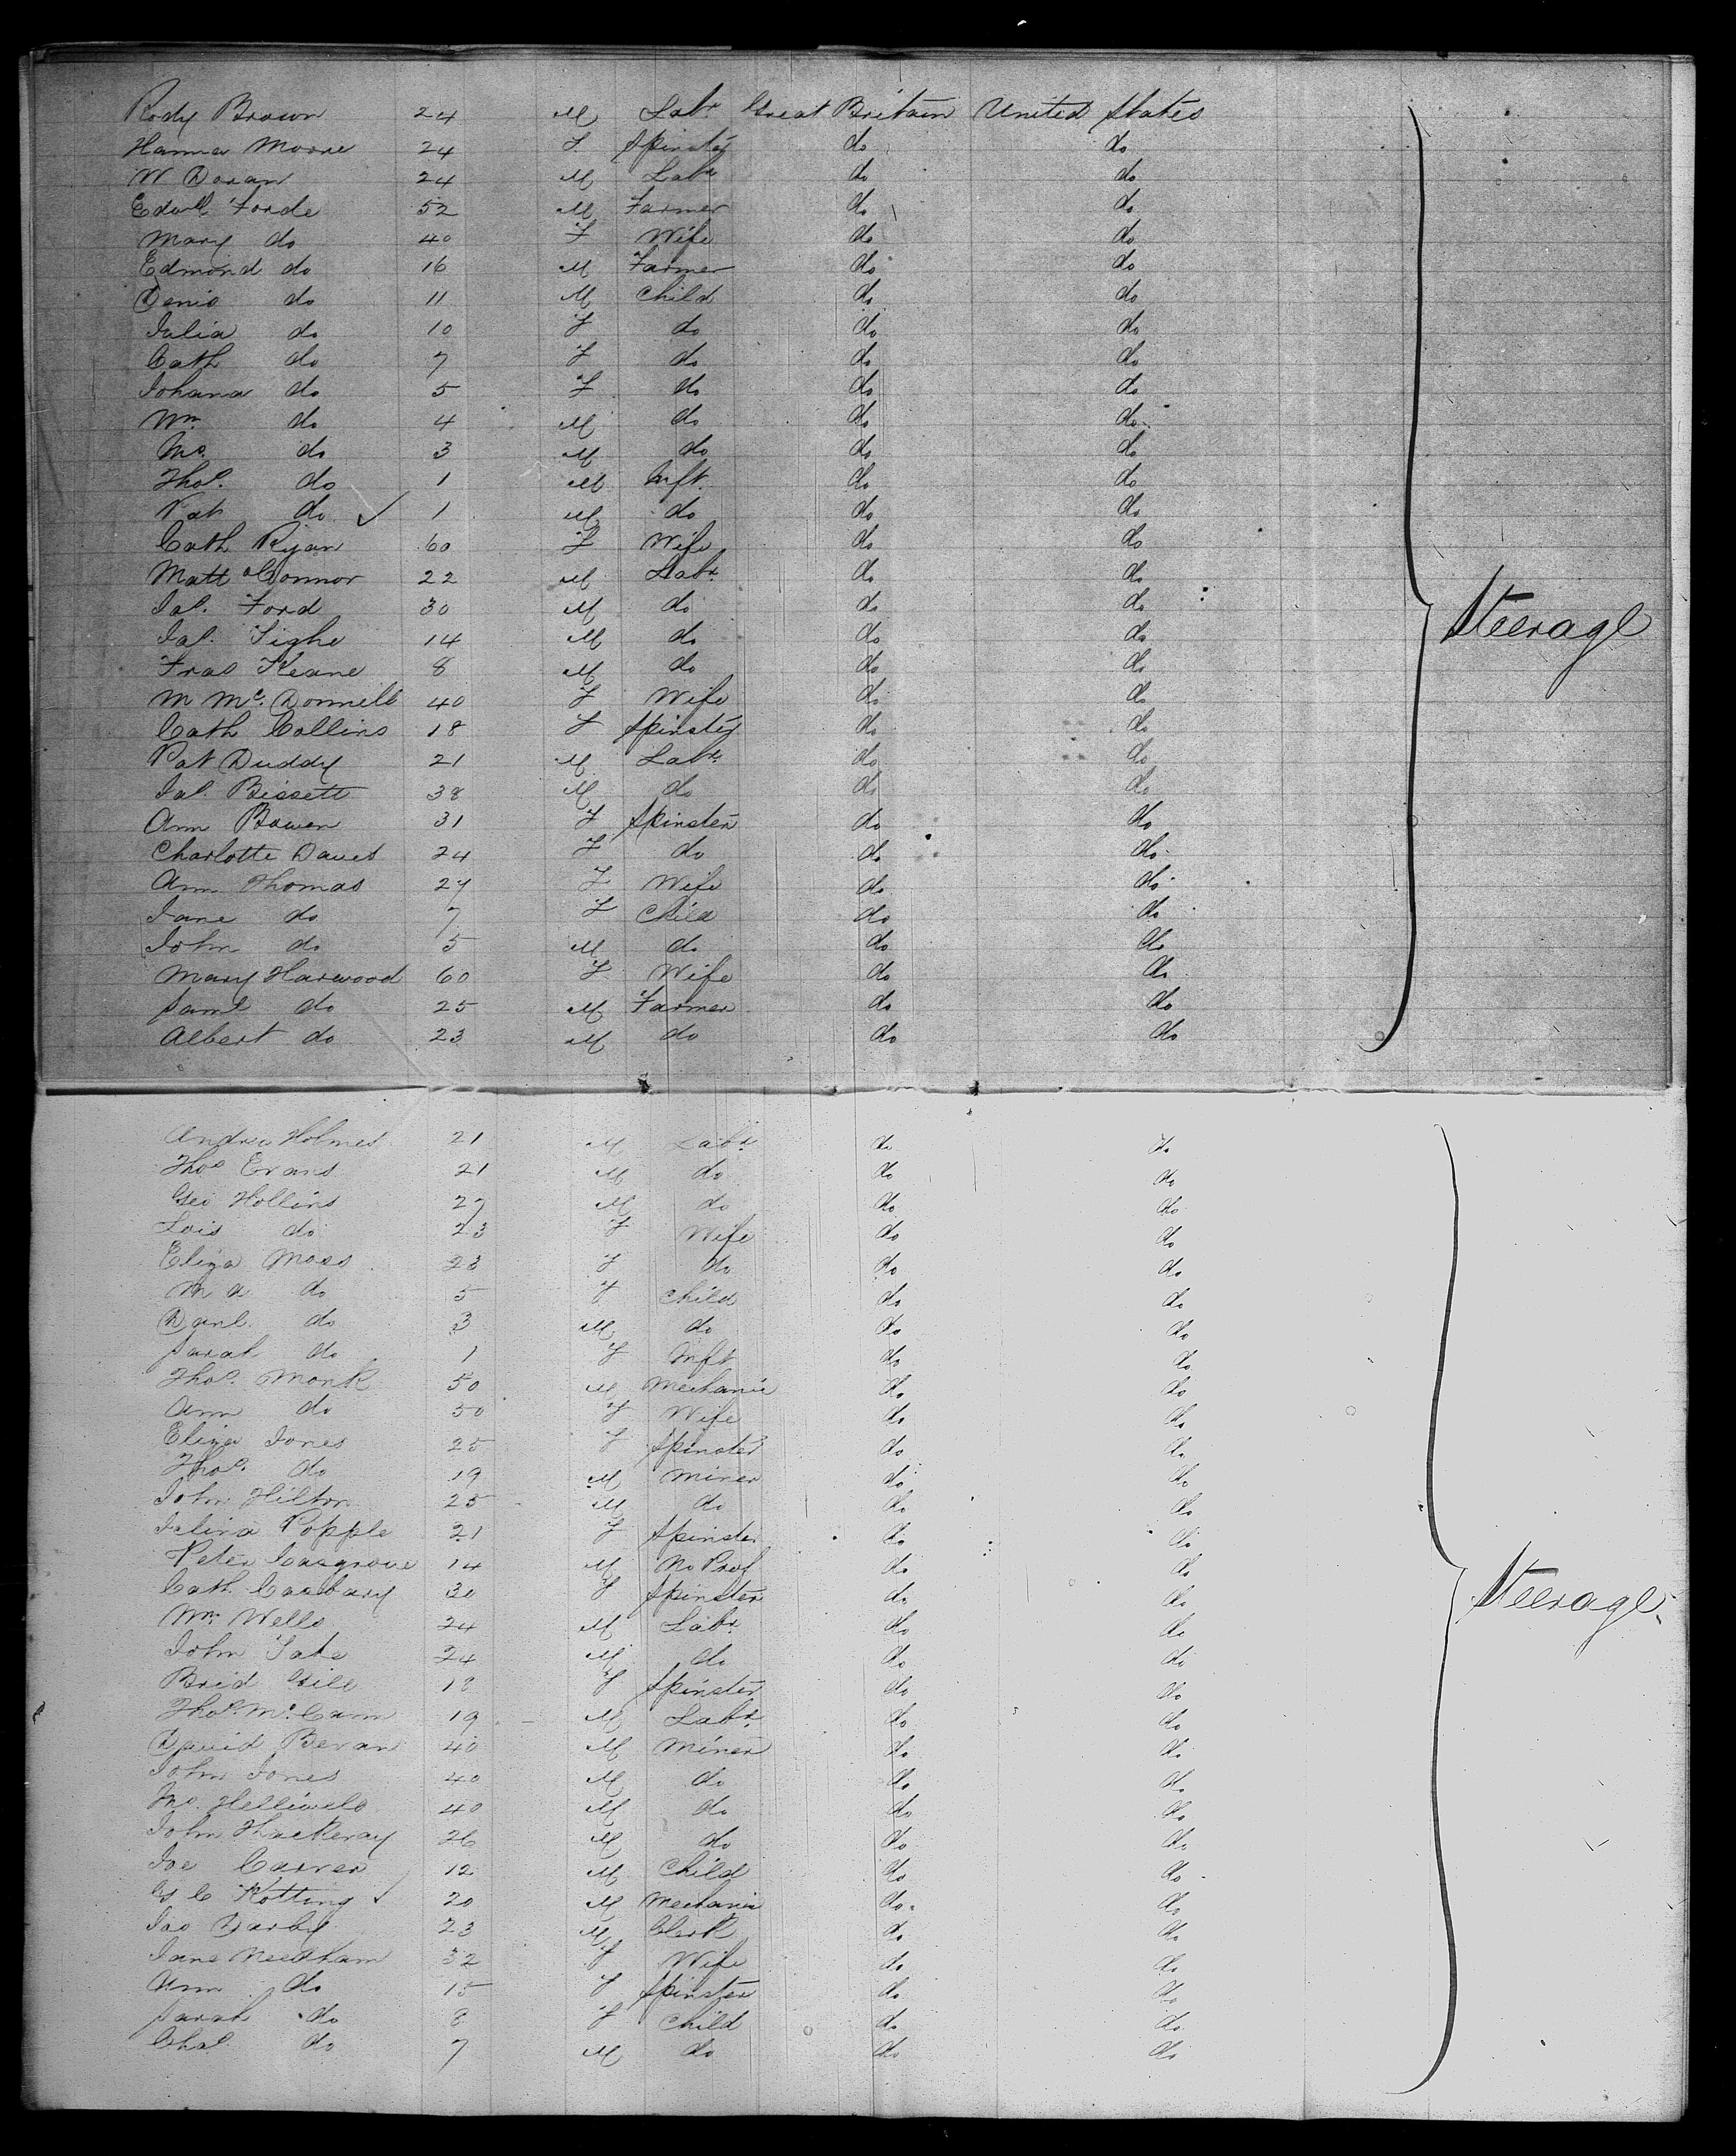 Rody Brown 24 M Labr. Great Britain United States
Hanna Moore 24 F Spinster do do
W Doran 24 M Labr do do
Edwd. Forde 52 M Farmer do do
Mary do 40 F Wife do do
Edmond do 16 M Farmer do do
Denis do 11 M Child do do
Julia do 10 F do do do
Cath do 7 F do do do
Johana do 5 F do do do
Wm. do 4 M do do do
Mo. do 3 M do do do
Thos. do 1 M Inft. do do
Pat do ✓ 1 M do do do
Cath Ryan 60 F Wife do do
Matt O'Connor 22 M Labr. do do
Jas. Ford 30 M do do do
Jas. Tighe 14 M do do do
Fras Keane 8 M do do do
Steerage
M Mc.Donnell 40 F Wife do do
Cath Collins 18 F Spinster do do
Pat Duddy 21 M Labr. do do
Jas. Bissett 38 M do do do
Ann Bowen 31 F Spinster do do
Charlotte Daves 24 F do do do
Ann Thomas 27 F Wife do do
Jane do 7 F Child do do
John do 5 M do do do
Mary Harwood 60 F Wife do do
Saml do 25 M Farmer do do
Albert do 23 M do do do
Andrew Holmes 21 M Labr. do do
Thos Evans 21 M do do do
Geo Hollins 27 M do do do
Lois do 23 F Wife do do
Eliza Moss 23 F do do do
M A do 5 F Child do do
Danl. do 3 M do do do
Sarah do 1 F Inft do do
Thos. Monk 50 M Mechanic do do
Ann do 50 F Wife do do
Eliza Jones 25 F Spinster do do
Thos. do 19 M Miner do do
John Hilton 25 M do do do
Popple 21 F Spinster do do
Peter Casgrove 14 M No Prof do do
Cath. 30 F Spinster do do
Steerage.
Wm. Wells 24 M Labr. do do
John Tate 24 M do do do
Brid Gill 18 F Spinster do do
Thos. Mc.Cann 19 M Labr. do do
David Bevan 40 M Miner do do
John Jones 40 M do do do
Helliwell 40 M do do do
John Thackeray 26 M do do do
Joe Carver 12 M Child do do
G C Kotting ✓ 20 M Mechanic do do
Jas Darby 23 M Clerk do do
Jane Needham 32 F Wife do do
Ann do 15 F Spinster do do
Sarah do 8 F Child do do
Chas. do 7 M do do do